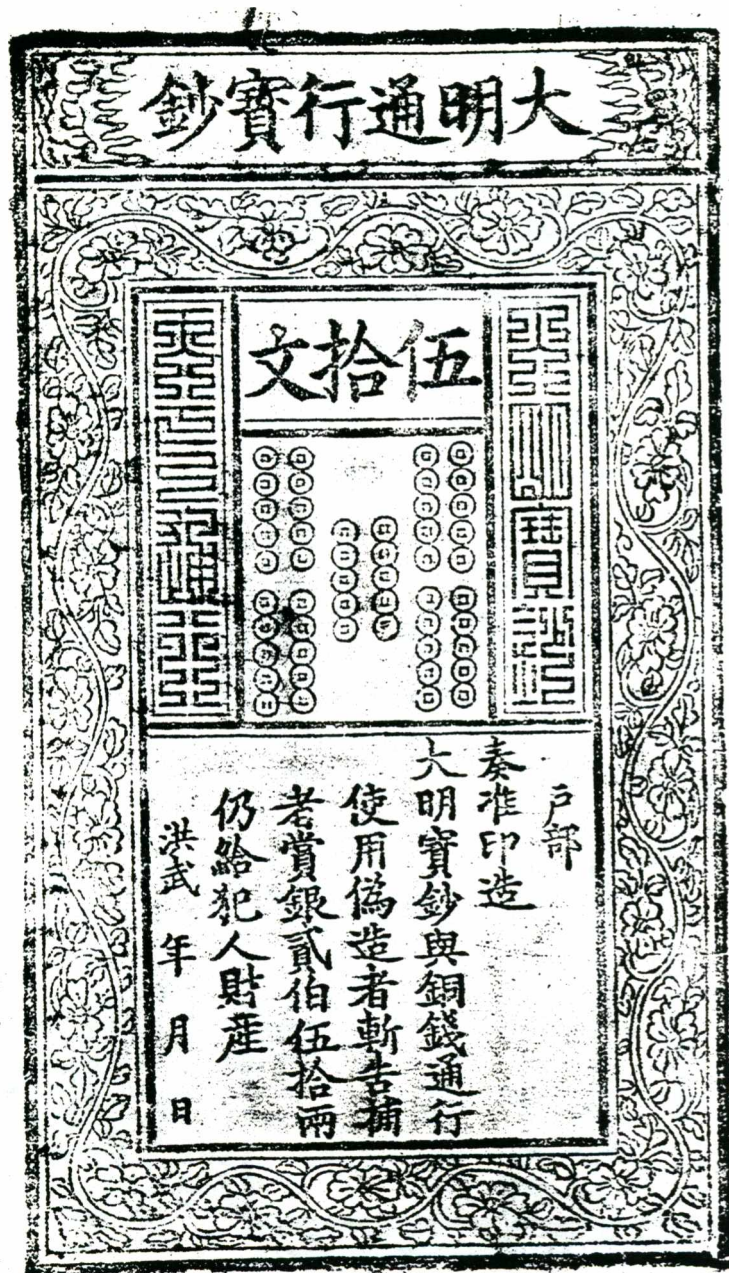 大明通行寶鈔
伍拾文
大明寶鈔
天下通行
戶部
奏准印造
大明寶鈔與銅錢通行
使用偽造者斬告捕
者賞銀貳伯伍拾兩
仍給犯人財産
洪武 年 月 日